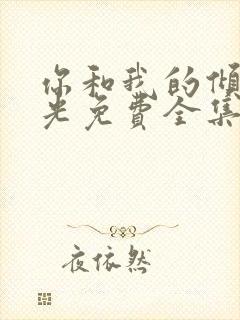 你和我的倾
光免费全集
夜依然